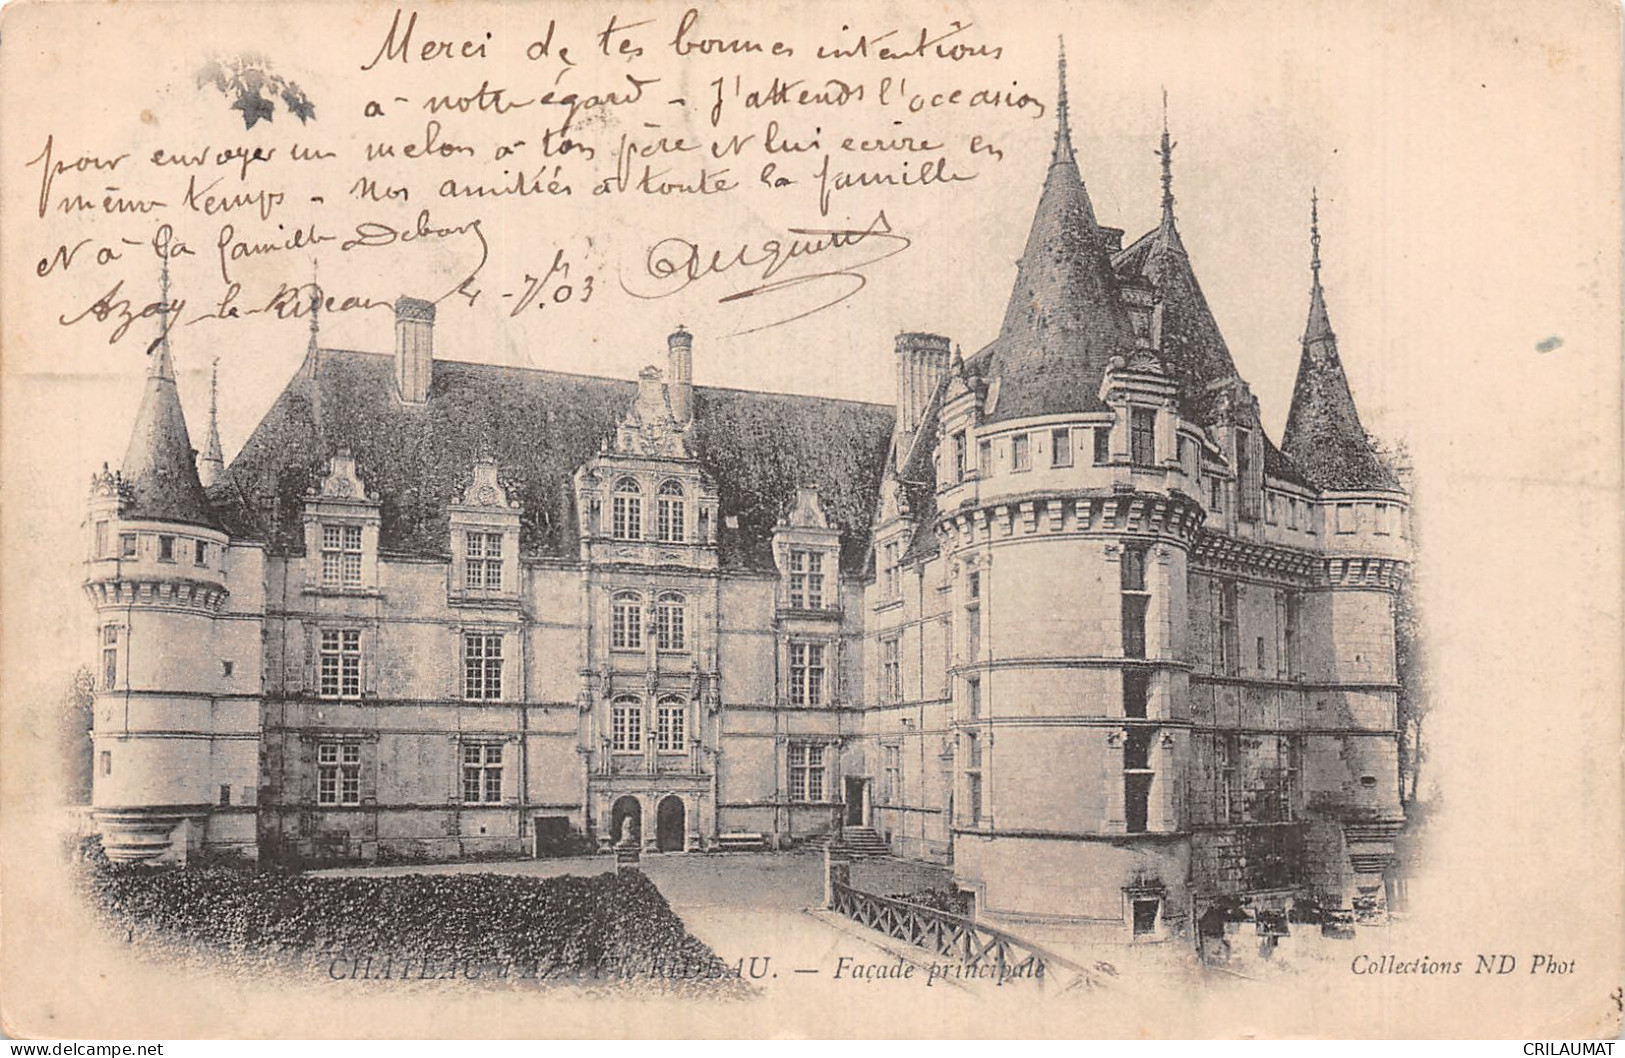 Merci de tes bonnes intentions
à notre égard - J'attends l'occasion
pour envoyer un melon à ton père et lui ecrire en
même temps - Nos amitiés à toute la famille
et à la famille
Azay-le-Rideau 4-7bre 03
CHATEAU d'AZAY-le-RIDEAU. — Façade principale
Collections ND Phot
CRILAUMAT